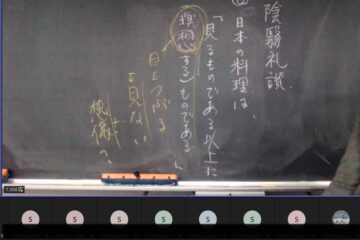 陰翳礼讃
日本の料理は、
「見るものである以上に
瞑想する」ものである。
目をつぶる
見ない
想像?
S
S
S
S
S
S
S